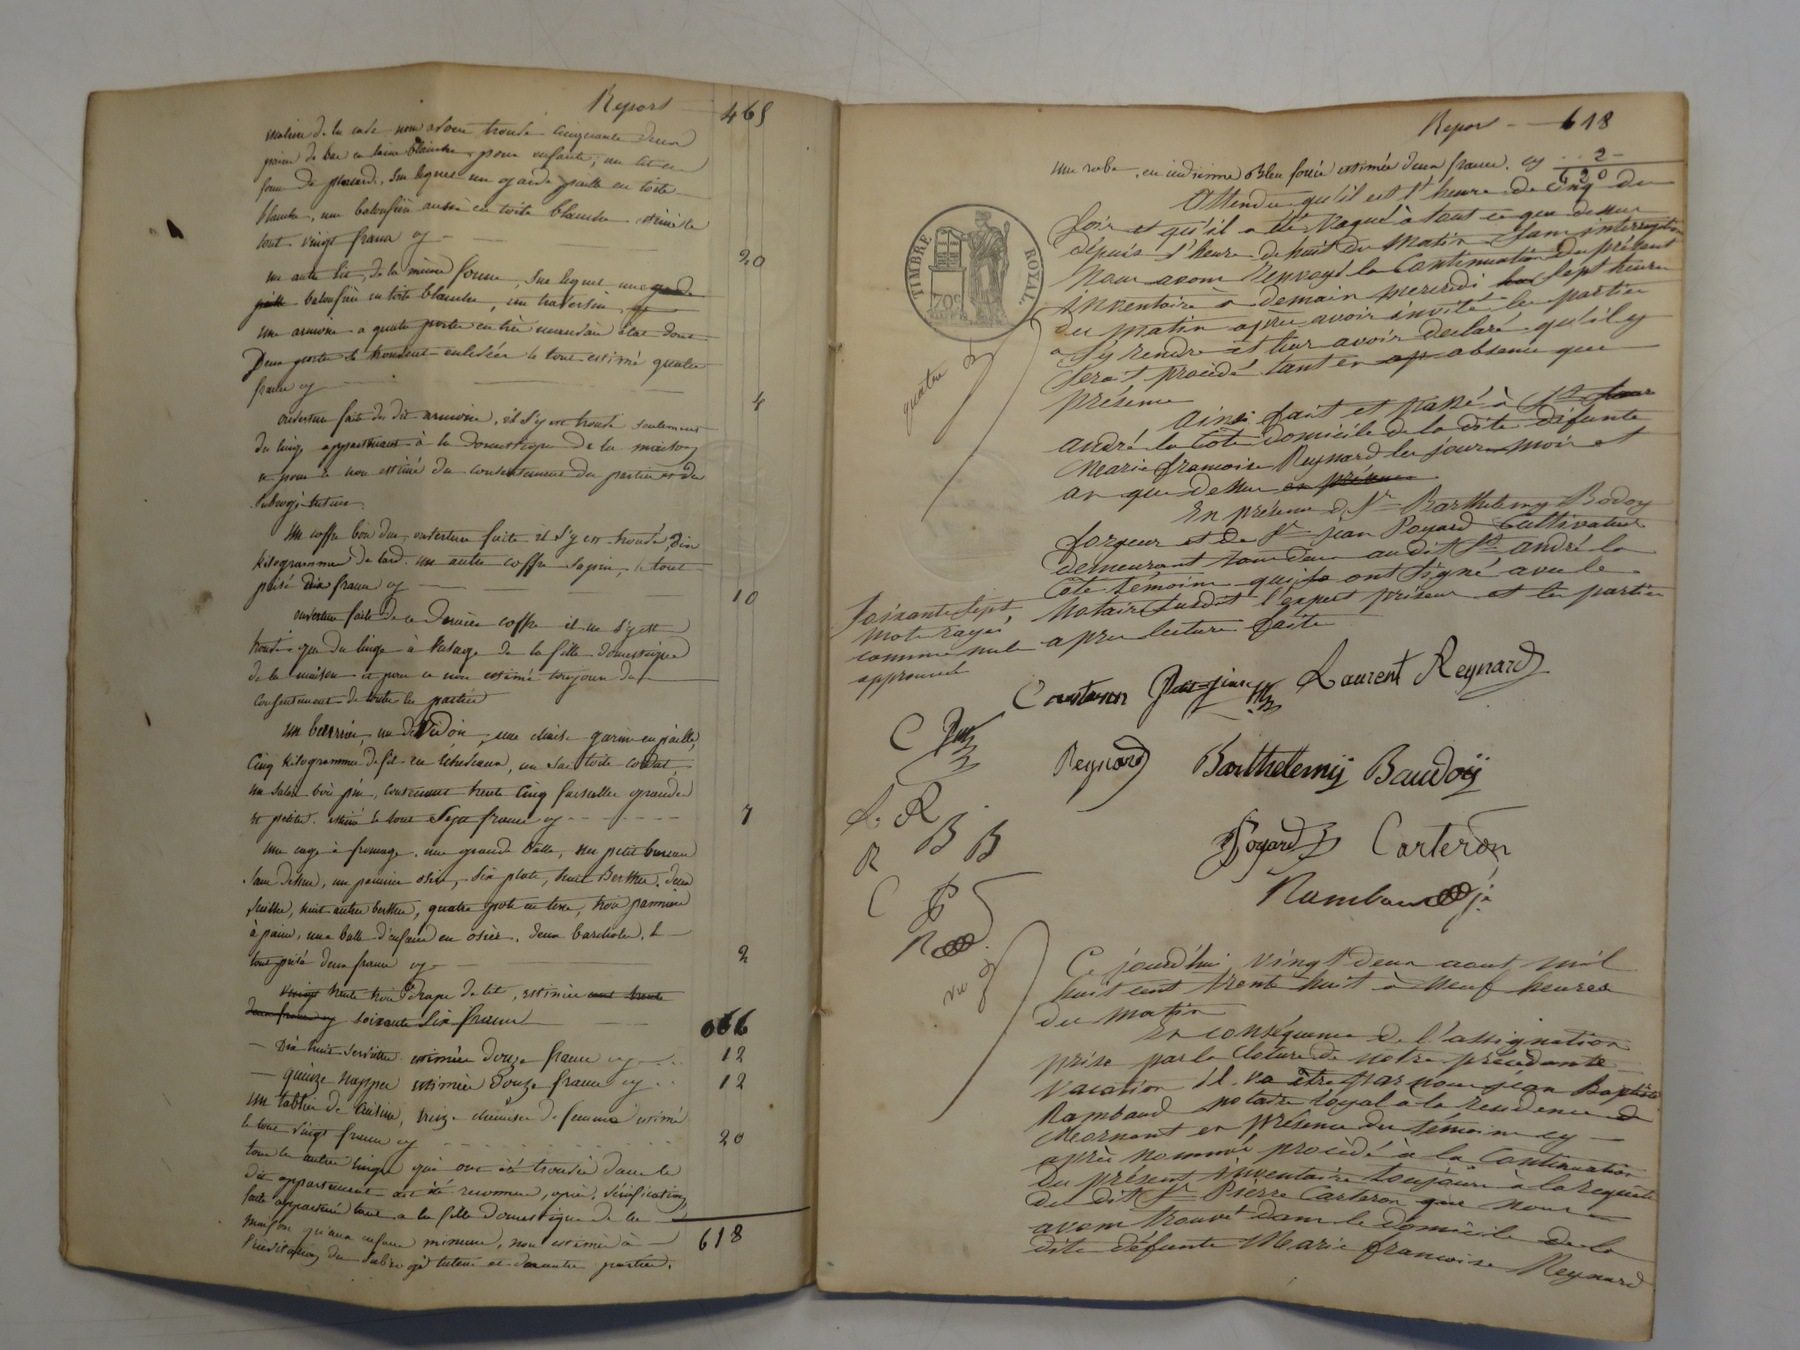 Report 465
matière de la cave nous avons trouvé cinquante deux
paires de bas en laine blanche pour enfants, un lit en
forme de placard, sur lequel un garde paille en toile
blanche, une balouffière aussi en toile blanche estimés le
tout vingt francs cy 20
un autre lit, de la même forme, sur lequel une garde
paille balouffière en toile blanche, un traversin,
une armoire a quatre portes en très mauvais état dont
Deux portes se trouvent enlevées le tout estimé quatre
francs cy 4
ouverture faite du dit armoire, il s'y est trouvé seulement
du linge appartenant à la domestique de la maison
et pour ce non estimé du consentement des parties et du
subrogé tuteur.
Un coffre bois dur, ouverture faite il s'y est trouvé, dix
kilogrammes de lard. un autre coffre sapin, le tout
prisé dix francs cy 10
ouverture faite de ce dernier coffre il ne s'y est
trouvé que du linge à l'usage de la fille domestique
de la maison et pour ce non estimé toujours du
consentement de toutes les parties
un, un dévidoir, une chaise garnie en paille,
Cinq kilogrammes de fil en écheveaux, un sac toile
un saloir bois pin, contenant trente cinq faisselles grandes
et petites. estimé le tout Sept francs cy 7
Une cage à fromage, une grande balle, un petit bureau
sans dessus, un pannier osier, six plats, huit Berthes, deux
seilles, huit autres berthes, quatre pots en terre, trois panniers
à pains, une balle d'enfant en osier, deux bascholes, le
tout prisé deux francs cy 2
vingt trente trois Draps de lit, estimés cent trente
deux francs cy soixante six francs 066
— Dix huit serviettes estimées douze francs cy 12
— quinze nappes estimées douze francs cy 12
un tablier de cuisine, treize chemises de femmes estimés
le tout vingt francs cy 20
tous les autres linges qui ont été trouvés dans le
dit appartement ont été reconnus, après vérification
faite appartenir tant a la fille domestique de la
maison qu'aux enfans mineurs, non estimés à
l'invitation du subrogé tuteur et des autres parties.
618
Report 618
une robe, en indienne Bleu foncé estimée deux francs. cy 2
620
Attendu qu'il est l'heure de cinq du
soir et qu'il a été vaqué à tout ce que dessus
depuis l'heure de huit du matin sans interruption
Nous avons renvoyé la Continuation du présent
inventaire a demain mercredi sept heures
du matin après avoir invité les parties
a s'y rendre et leur avoir declaré qu'il y
serait procédé tant en absence que
présence
Ainsi fait et passé à St
andré la Cote domicile de la dite défunte
Marie françoise Reynard les jour mois et
an que dessus en présence
En présence de Sr Barthelemy Bodoy
forgeur et de Sr jean Poyard Cultivateur
demeurant tous deux au dit St andré la
Cote témoins qui ont signé avec le
Notaire susdit l'expert priseur et les parties
apres lecture faite
TIMBRE ROYAL.
70c
quatre
soixante sept
mots rayés
comme nuls
approuvés
Carteron Laurent Reynard
Reynard Barthelemÿ Baudoÿ
Poyard Carteron
Rambaud
C
L. R
B B
R
C P
R
Ce jourd'hui vingt deux aout mil
huit cent trente huit à neuf heures
du matin
En conséquence de l'assignation
prise par la Cloture de notre précédente
Vacation il va être par nous jéan Baptiste
Rambaud notaire royal à la résidence de
Mornant en présence des témoins cy
après nommés procédé à la Continuation
du présent inventaire toujours à la requête
du dit Sr Pierre Carteron que nous
avons trouvé dans le domicile de la
dite défunte Marie françoise Reynard